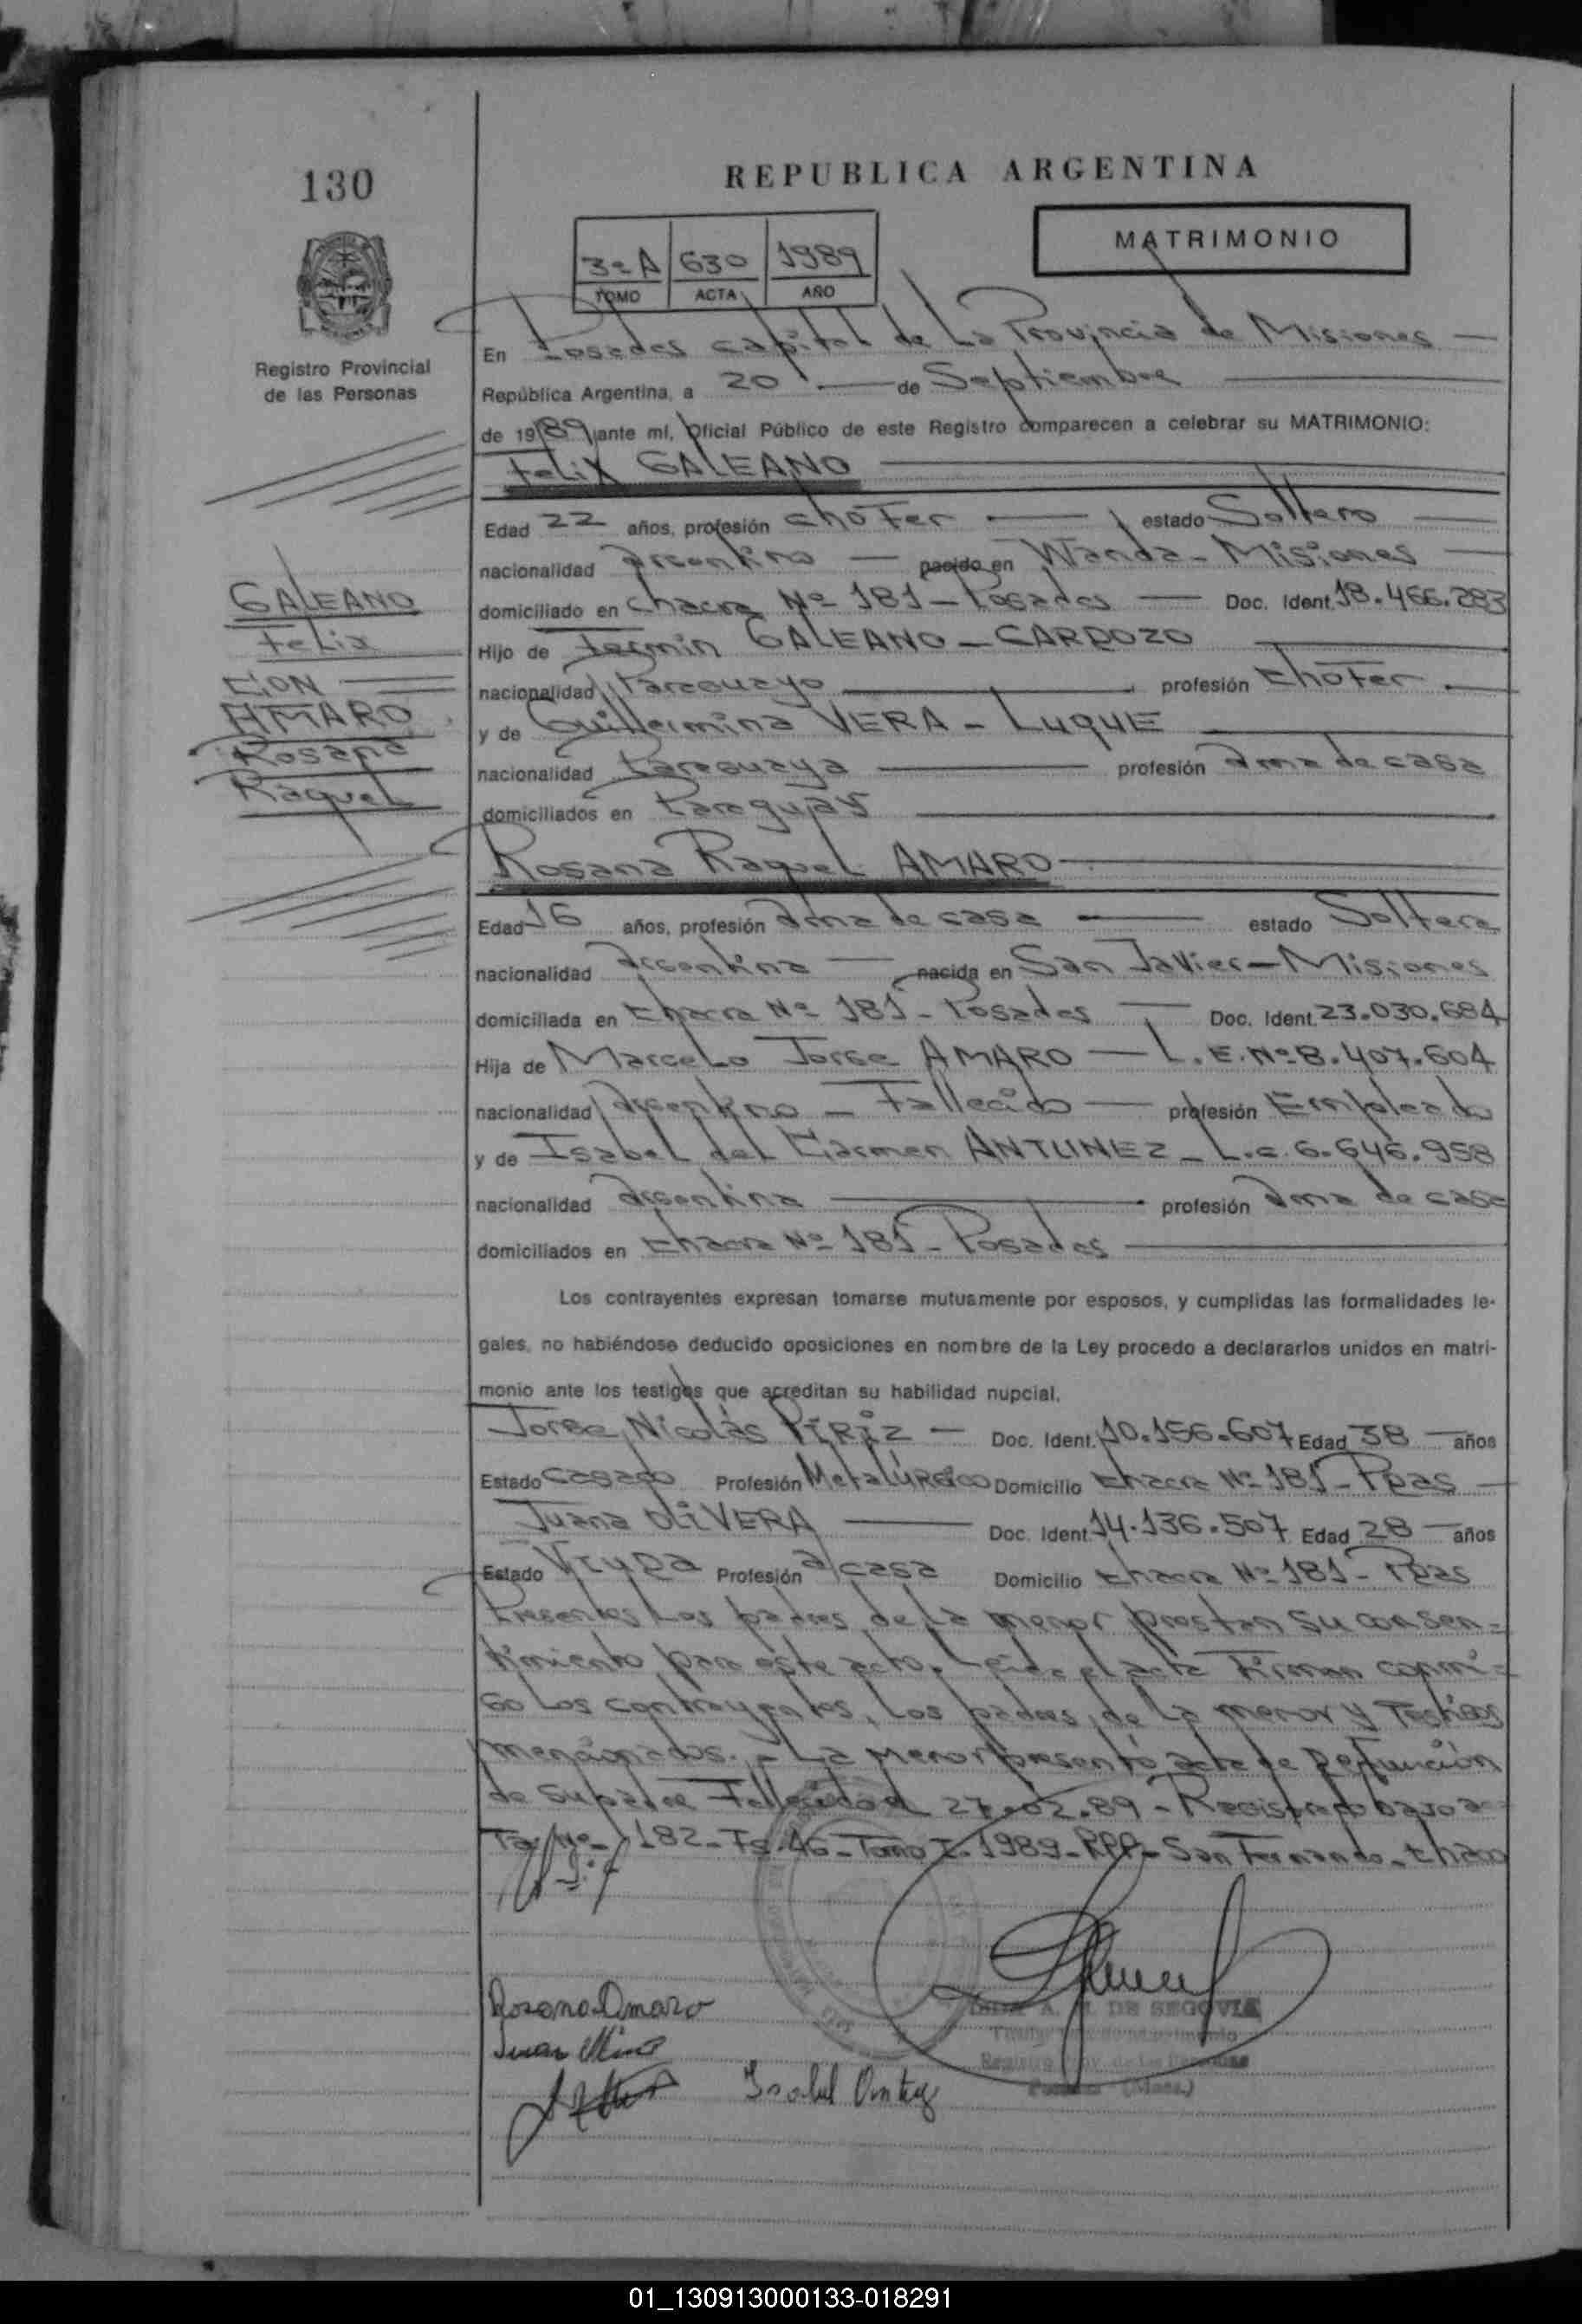 130
REPUBLICA ARGENTINA
MATRIMONIO
3º A 630 1989
TOMO ACTA AÑO
Registro Provincial
de las Personas
En Posadas capital de La Provincia de Misiones
República Argentina, a 20 de Septiembre
de 1989 ante mí, Oficial Público de este Registro comparecen a celebrar su MATRIMONIO:
Felix GALEANO
Edad 22 años, profesión choFer estado Soltero
nacionalidad Argentino nacido en Wanda - Misiones
domiciliado en Chacra Nº 181 - Posadas Doc. Ident. 18.466.283
Hijo de Fermin GALEANO - CARDOZO
nacionalidad Paraguayo profesión ChoFer
y de Guillermina VERA - LUQUE
nacionalidad Paraguaya profesión Ama de casa
domiciliados en Paraguay
GALEANO
Felix
CON
AMARO
Rosana
Raquel
Rosana Raquel AMARO
Edad 16 años, profesión Ama de casa estado Soltera
nacionalidad Argentina nacida en San Javier - Misiones
domiciliada en Chacra Nº 181 - Posadas Doc. Ident. 23.030.684
Hija de Marcelo Jorge AMARO - L.E. Nº 8.407.604
nacionalidad Argentino - Fallecido - profesión Empleado
y de Isabel del Carmen ANTUNEZ - L.C. 6.646.958
nacionalidad Argentina profesión Ama de casa
domiciliados en Chacra Nº 181 - Posadas
Los contrayentes expresan tomarse mutuamente por esposos, y cumplidas las formalidades le-
gales, no habiéndose deducido oposiciones en nombre de la Ley procedo a declararlos unidos en matri-
monio ante los testigos que acreditan su habilidad nupcial.
Jorge Nicolás PIRIZ - Doc. Ident. 10.156.607 Edad 38 años
Estado Casado Profesión Metalúrgico Domicilio Chacra Nº 181 - Pdas
Juana OLIVERA Doc. Ident. 14.136.507 Edad 28 años
Estado Viuda Profesión a/casa Domicilio Chacra Nº 181 - Pdas
Presentes Los padres de La menor prestan su consen=
timiento para este acto. Leida el acta Firman conmi=
go Los contrayentes, Los padres de La menor y Testigos
mencionados. - La menor presentó acta de Defunción
de su padre Fallecido el 27.02.89 - Registrado bajo ac=
Ta Nº 182 - Fs. 46 - Tomo I - 1989 - RPP - San Fernando - Chaco
Rosana Amaro
A. M. DE SEGOVIA
01_130913000133-018291